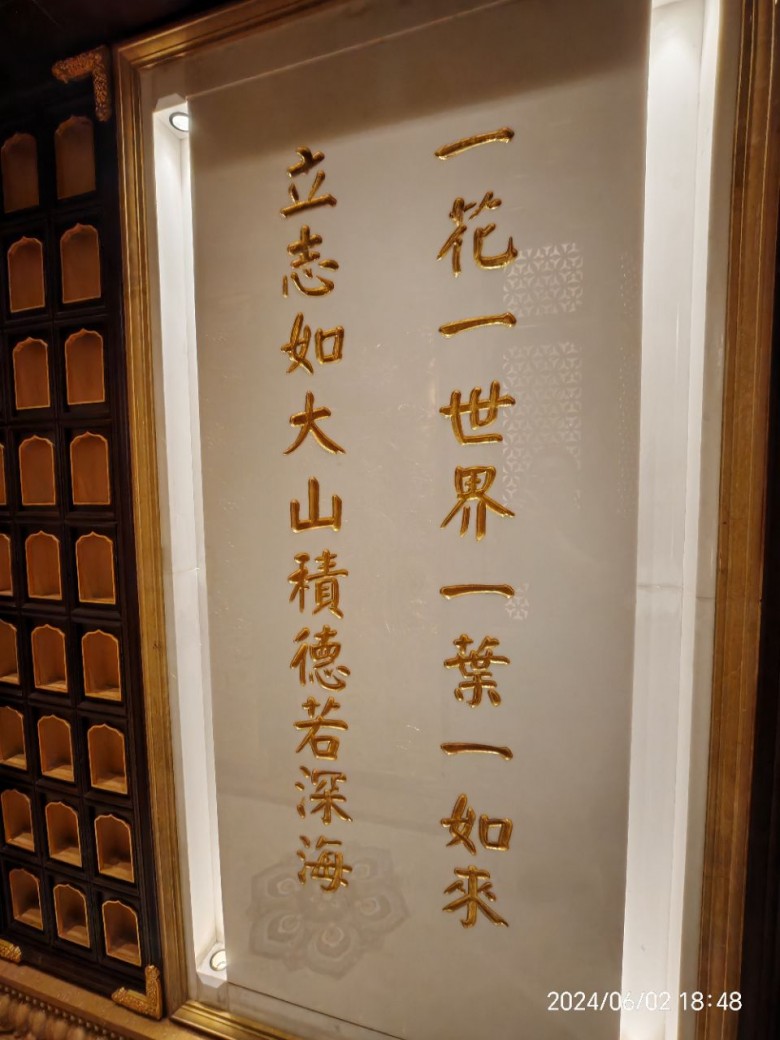 一花一世界一葉一如來
立志如大山積德若深海
2024/06/02 18:48